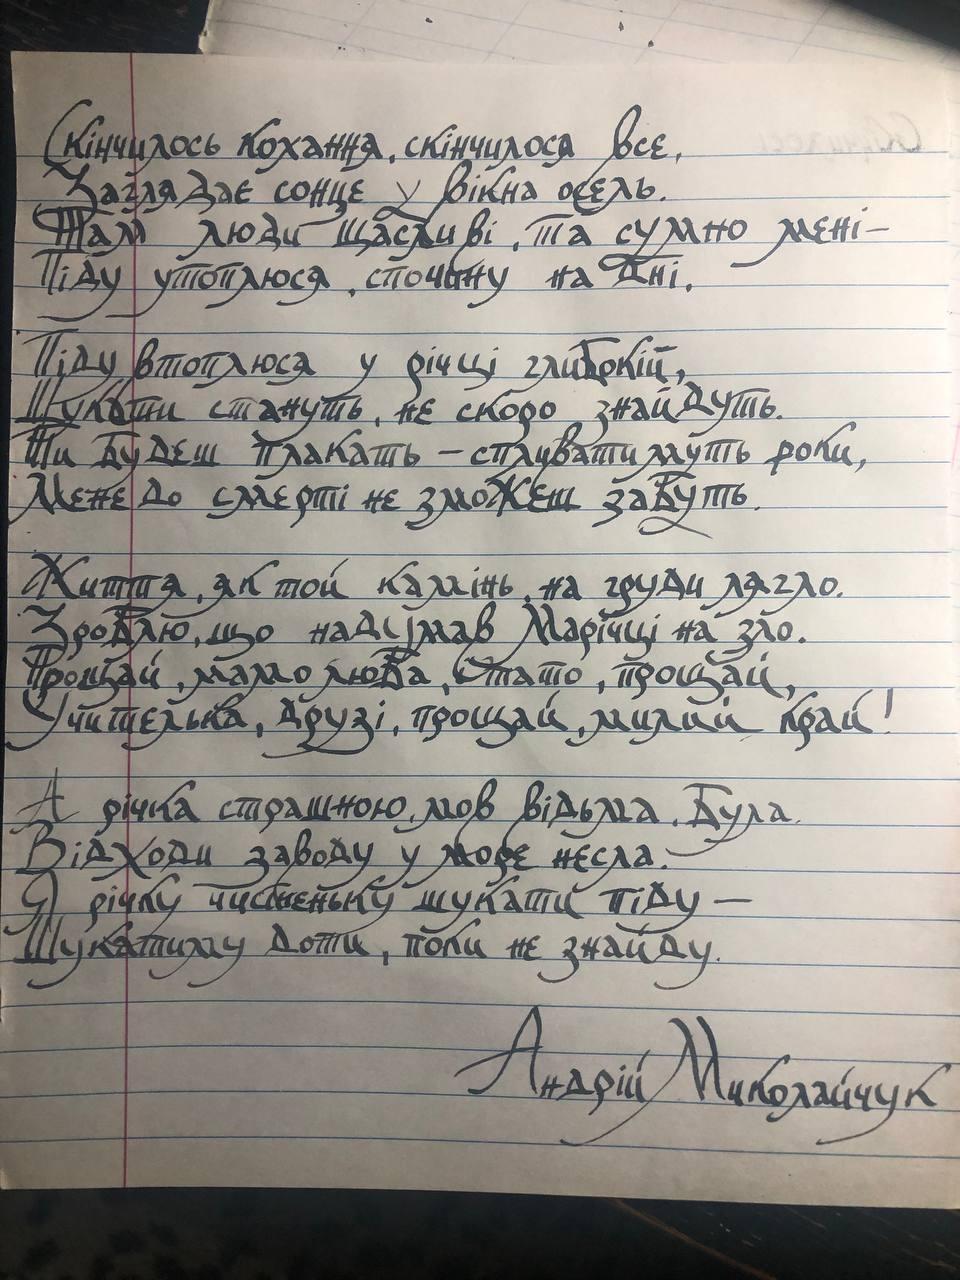 Скінчилось кохання, скінчилося все,
Заглядає сонце у вікна осель.
Там люди щасливі, та сумно мені –
Піду утоплюся, спочину на дні.
Піду втоплюся у річці глибокій,
Шукати стануть, не скоро знайдуть.
Ти будеш плакать – спливатимуть роки,
Мене до смерті не зможеш забуть.
Життя, як той камінь, на груди лягло.
Зроблю, що надумав Марічці на зло.
Прощай, мамо люба, і тато, прощай,
Учителька, друзі, прощай, милий край!
А річка страшною, мов відьма, була.
Відходи заводу у море несла.
Я річку чистеньку шукати піду –
Шукатиму доти, поки не знайду.
Андрій Миколайчук